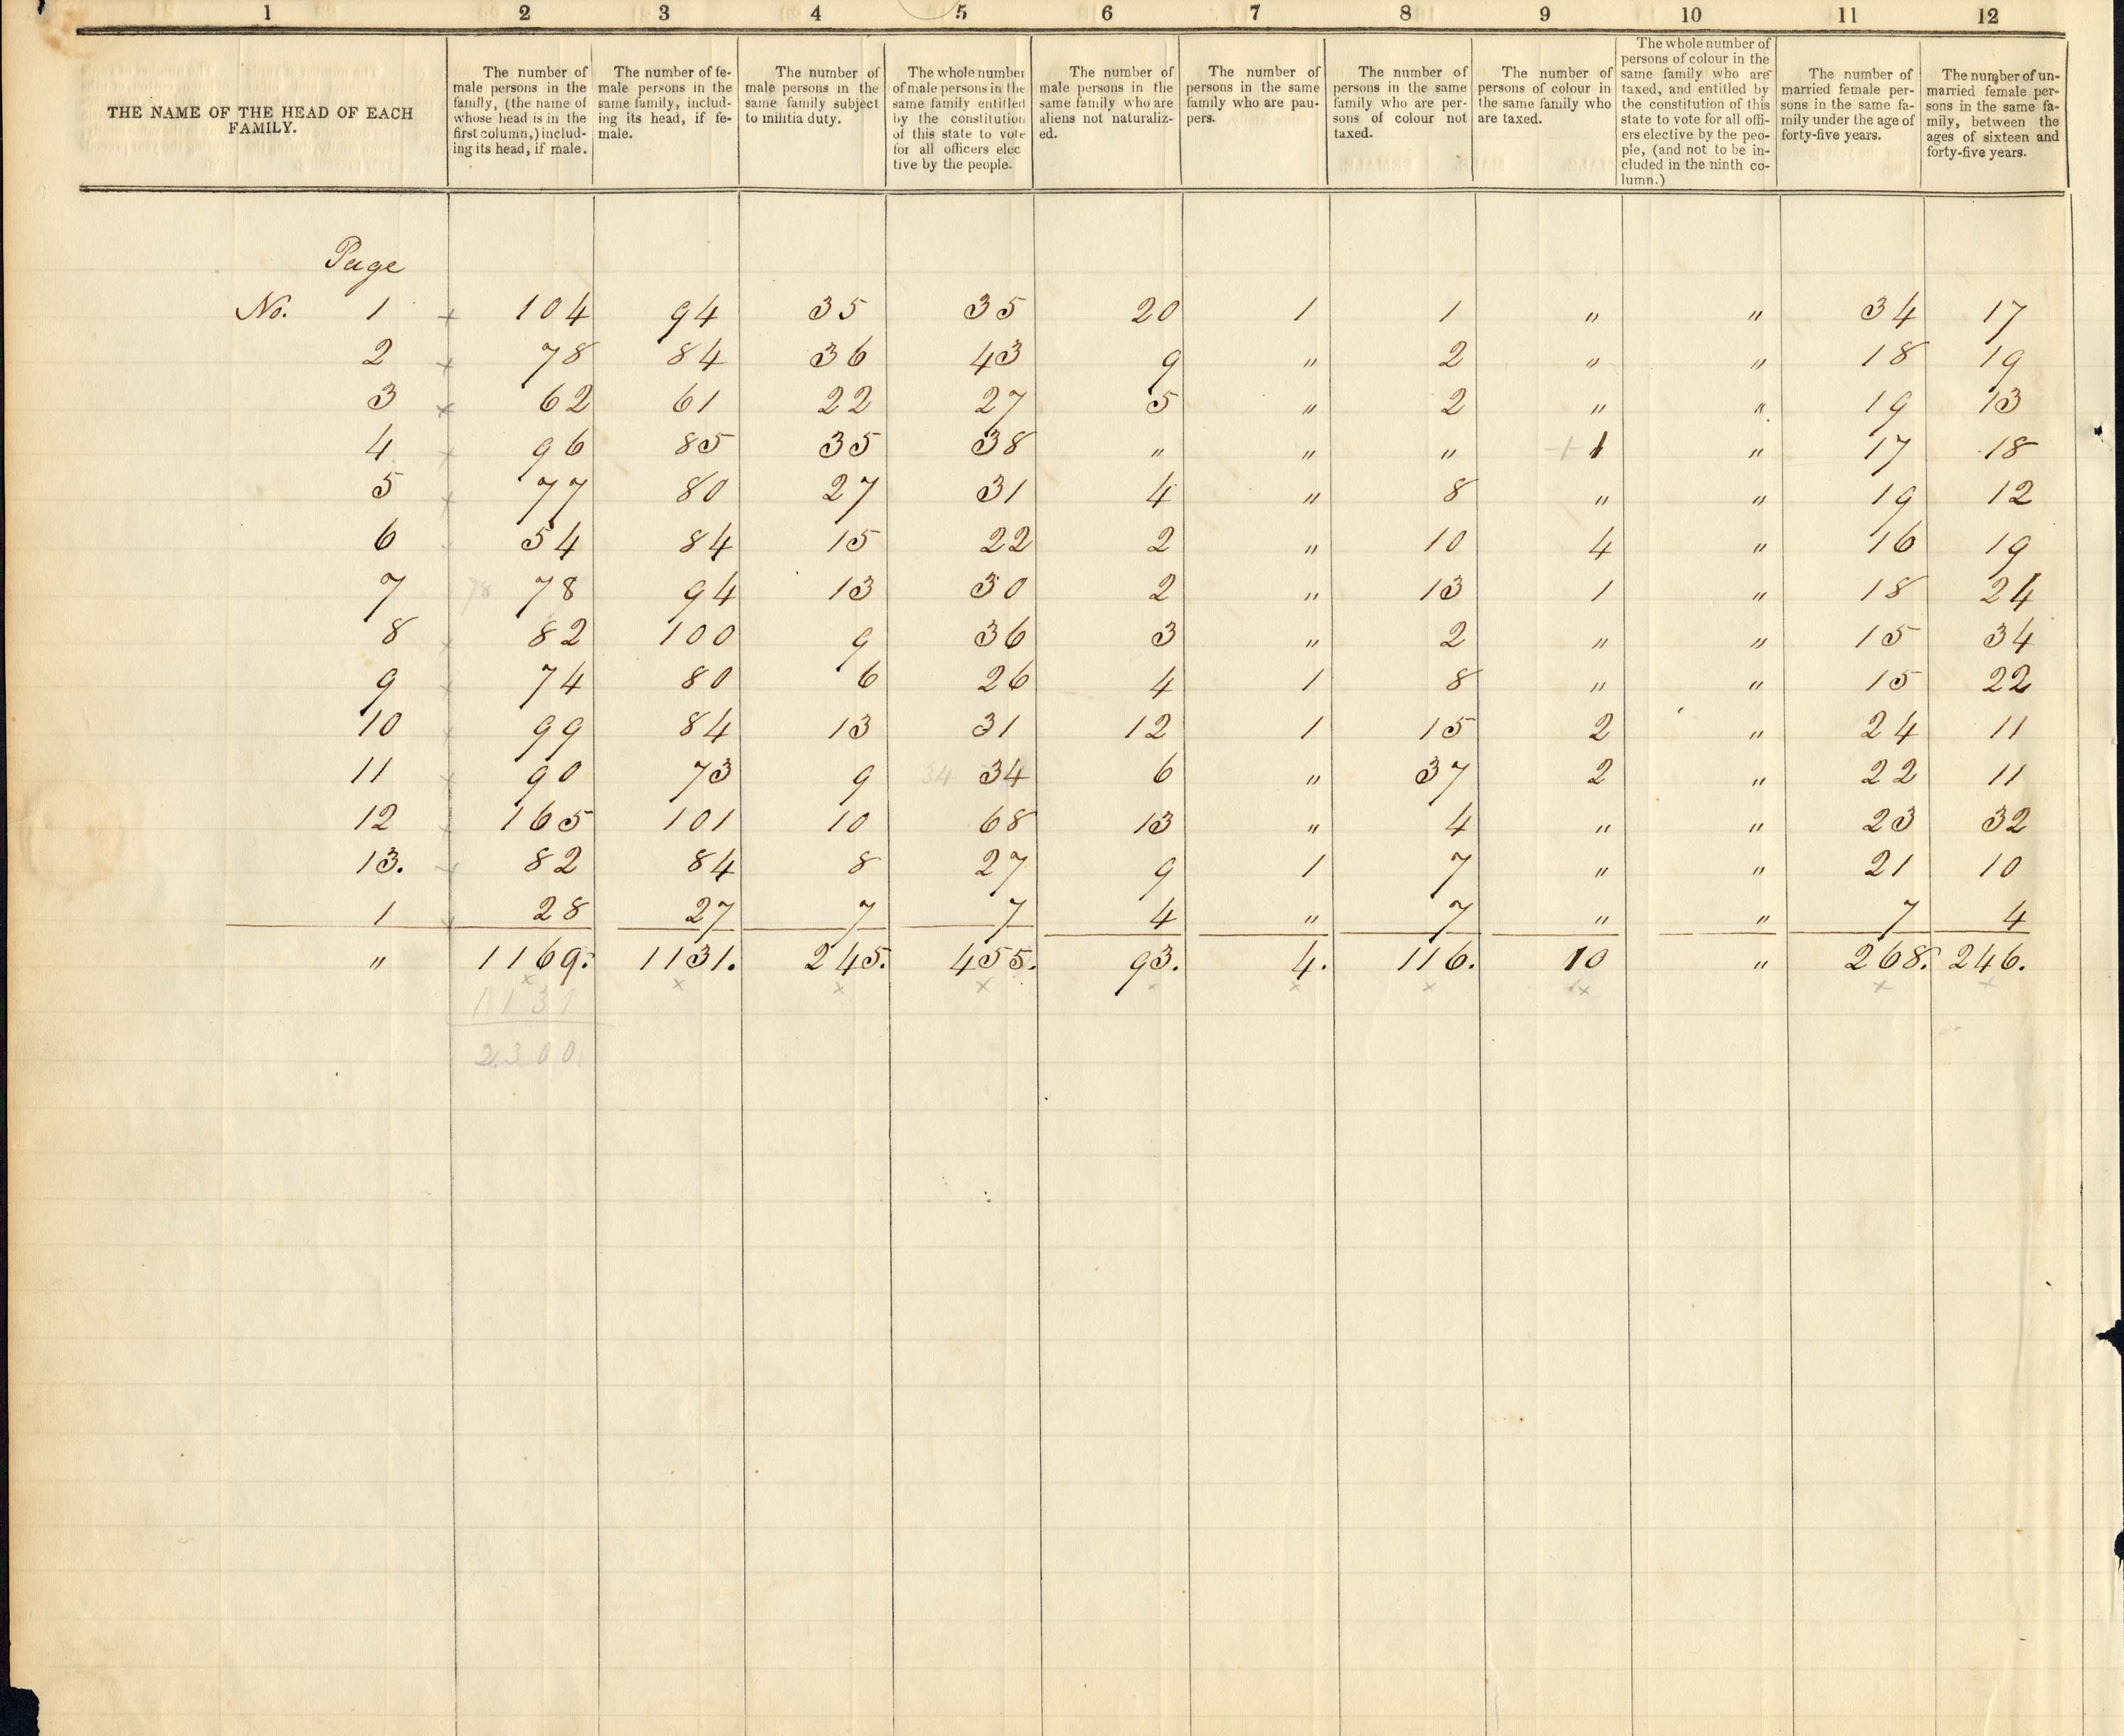 1 2 3 4 5 6 7 8 9 10 11 12
THE NAME OF THE HEAD OF EACH
FAMILY.
The number of
male persons in the
family, (the name of
whose head is in the
first column,) includ-
ing its head, if male.
The number of fe-
male persons in the
same family, includ-
ing its head, if fe-
male.
The number of
male persons in the
same family subject
to militia duty.
The whole number
of male persons in the
same family entitled
by the constitution
of this state to vote
for all officers elec
tive by the people.
The number of
male persons in the
same family who are
aliens not naturaliz-
ed.
The number of
persons in the same
family who are pau-
pers.
The number of
persons in the same
family who are per-
sons of colour not
taxed.
The number of
persons of colour in
the same family who
are taxed.
The whole number of
persons of colour in the
same family who are
taxed, and entitled by
the constitution of this
state to vote for all offi-
cers elective by the peo-
ple, (and not to be in-
cluded in the ninth co-
lumn.)
The number of
married female per-
sons in the same fa-
mily under the age of
forty-five years.
The number of un-
married female per-
sons in the same fa-
mily, between the
ages of sixteen and
forty-five years.
Page
No. 1 x 104 94 35 35 20 1 1 " " 34 17
2 x 78 84 36 43 9 " 2 " " 18 19
3 x 62 61 22 27 5 " 2 " " 19 13
4 x 96 85 35 38 " " " 1 1 " 17 18
5 x 77 80 27 31 4 " 8 " " 19 12
6 54 84 15 22 2 " 10 4 " 16 19
7 78 78 94 13 30 2 " 13 1 " 18 24
8 x 82 100 9 36 3 " 2 " " 15 34
9 x 74 80 6 26 4 1 8 " " 15 22
10 x 99 84 13 31 12 1 15 2 " 24 11
11 x 90 73 9 34 34 6 " 37 2 " 22 11
12 x 165 101 10 68 13 " 4 " " 23 32
13. x 82 84 8 27 9 1 7 " " 21 10
1 x 28 27 7 7 4 " 7 " " 7 4
" 1169. 1131. 245. 455. 93. 4. 116. 10 " 268. 246.
x x x x x x x x x x
1131
2300